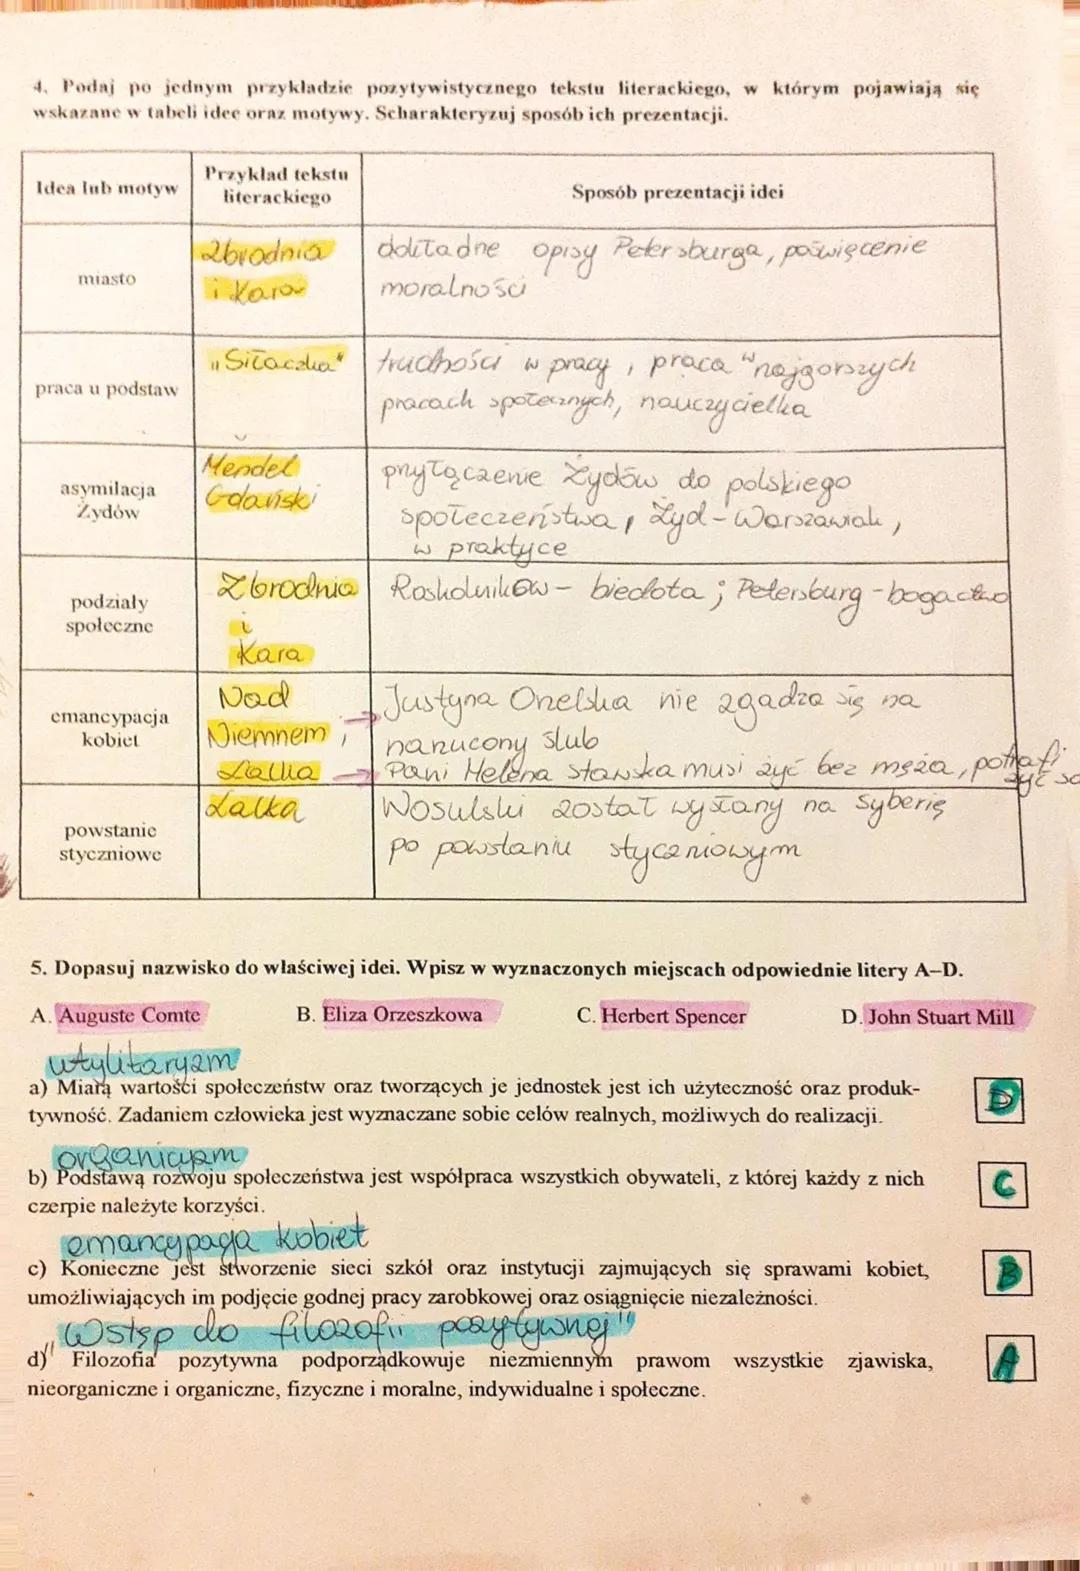 4. Podaj po jednym przykładzie pozytywistycznego tekstu literackiego, w którym pojawiają się
wskazane w tabeli idee oraz motywy. Scharakteryzuj sposób ich prezentacji.
Idea lub motyw
Przykład tekstu
literackiego
Sposób prezentacji idei
miasto
Zbrodnia
i Kara
dokładne opisy Petersburga, poświęcenie
moralności
praca u podstaw
"Siłaczka"
trudności w pracy, praca w najgorszych
pracach społecznych, nauczycielka
asymilacja
Żydów
Mendel
Gdański
przyłączenie Żydów do polskiego
społeczeństwa, Żyd-Warszawiak,
w praktyce
podziały
społeczne
Zbrodnia
i
Kara
Raskolnikow - biedota ; Petersburg - bogactwo
emancypacja
kobiet
Nad
Niemnem,
Lalka
Justyna Orzelska nie zgadza się na
narzucony ślub
Pani Helena Stawska musi żyć bez męża, potrafi
żyć
powstanie
styczniowe
Lalka
Wosulski został wysłany na Syberię
po powstaniu styczniowym
5. Dopasuj nazwisko do właściwej idei. Wpisz w wyznaczonych miejscach odpowiednie litery A–D.
A. Auguste Comte B. Eliza Orzeszkowa C. Herbert Spencer D. John Stuart Mill
utylitaryzm
a) Miarą wartości społeczeństw oraz tworzących je jednostek jest ich użyteczność oraz produk-
tywność. Zadaniem człowieka jest wyznaczane sobie celów realnych, możliwych do realizacji.
D
organicyzm
b) Podstawą rozwoju społeczeństwa jest współpraca wszystkich obywateli, z której każdy z nich
czerpie należyte korzyści.
C
emancypacja kobiet
c) Konieczne jest stworzenie sieci szkół oraz instytucji zajmujących się sprawami kobiet,
umożliwiających im podjęcie godnej pracy zarobkowej oraz osiągnięcie niezależności.
B
"Wstęp do filozofii pozytywnej"
d) Filozofia pozytywna podporządkowuje niezmiennym prawom wszystkie zjawiska,
nieorganiczne i organiczne, fizyczne i moralne, indywidualne i społeczne.
A